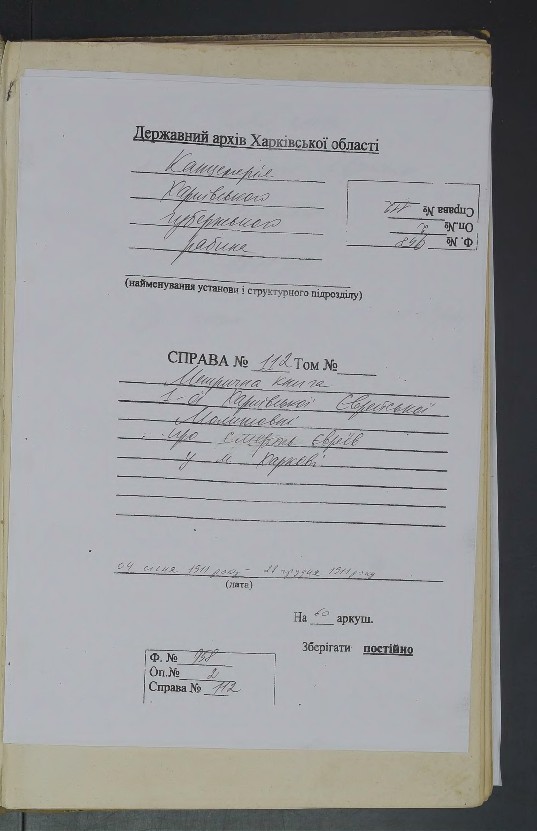 Державний архів Харківської області
Канцелярія
Харківського
губернського
рабина
(найменування установи і структурного підрозділу)
Ф. № 958
Оп.№ 2
Справа № 112
СПРАВА № 112 Том №
Метрична книга
1-ої Харківської Єврейської
Молитовні
про смерть євреїв
у м. Харкові
04 січня 1911 року - грудня 1911 року
(дата)
На 60 аркуш.
Зберігати постійно
Ф. № 958
Оп.№ 2
Справа № 112